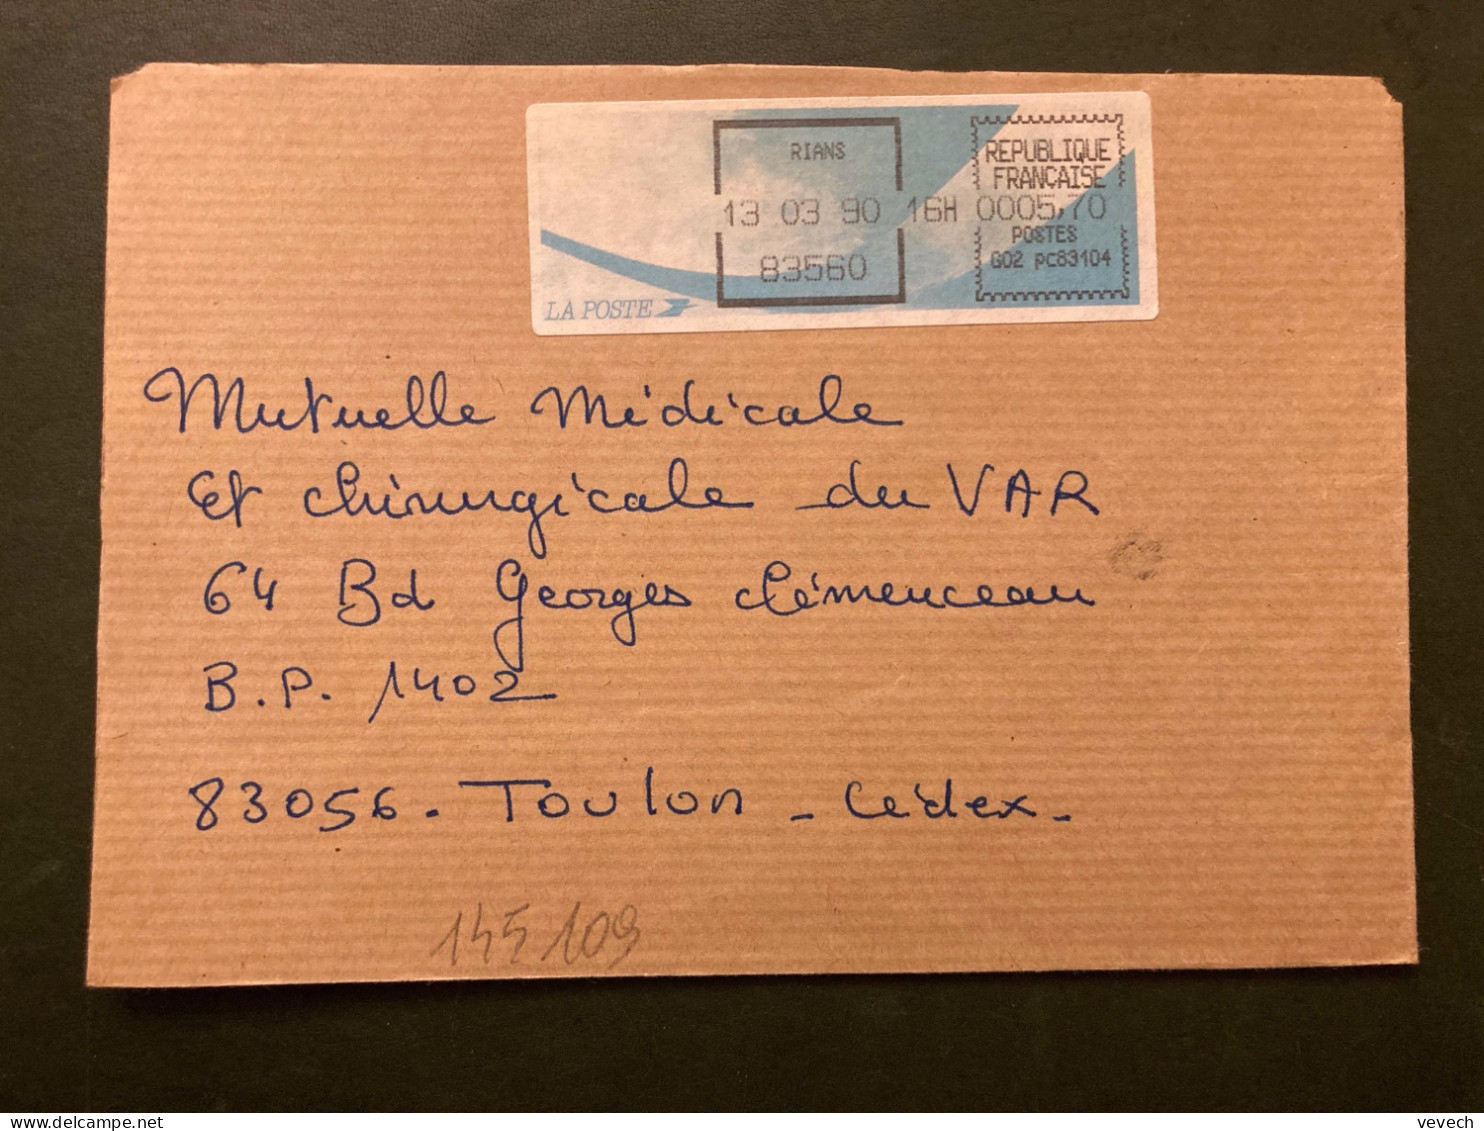 RIANS
REPUBLIQUE
FRANÇAISE
13 03 90 16H 0005,70
POSTES
83560
G02 PC83104
LA POSTE
Mutuelle Médicale
Et chirurgicale du VAR
64 Bd Georges Clémenceau
B.P. 1402
83056. Toulon - Cédex -
145109
vevech